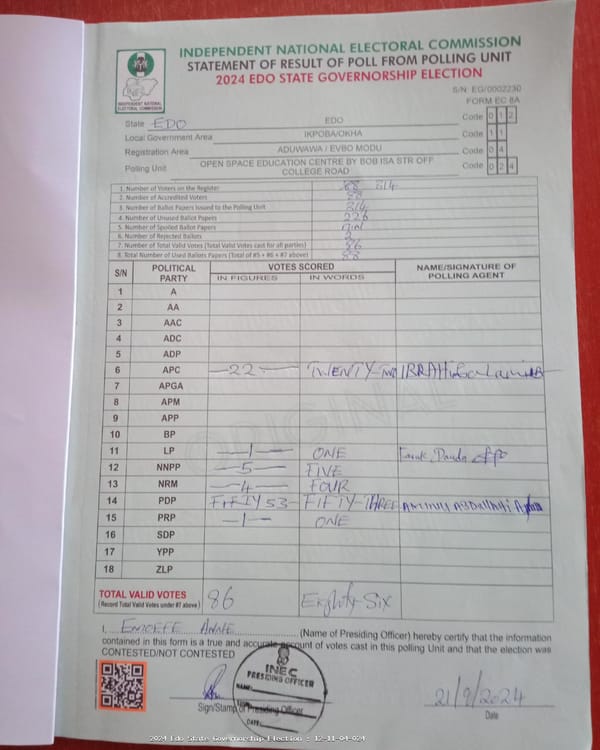 INDEPENDENT NATIONAL ELECTORAL COMMISSION
STATEMENT OF RESULT OF POLL FROM POLLING UNIT
2024 EDO STATE GOVERNORSHIP ELECTION
INEC
INDEPENDENT NATIONAL
ELECTORAL COMMISSION
S/N: EG/0002230
FORM EC 8A
State EDO EDO Code 0 1 2
Local Government Area IKPOBA/OKHA Code 1 1
Registration Area ADUWAWA / EVBO MODU Code 0 4
Polling Unit OPEN SPACE EDUCATION CENTRE BY BOB ISA STR OFF COLLEGE ROAD Code 0 2 4
1. Number of Voters on the Register 314
2. Number of Accredited Voters 88
3. Number of Ballot Papers Issued to the Polling Unit 314
4. Number of Unused Ballot Papers 226
5. Number of Spoiled Ballot Papers
6. Number of Rejected Ballots 2
7. Number of Total Valid Votes (Total Valid Votes cast for all parties) 86
8. Total Number of Used Ballots Papers (Total of #5 + #6 + #7 above) 88
S/N POLITICAL PARTY VOTES SCORED NAME/SIGNATURE OF POLLING AGENT
IN FIGURES IN WORDS
1 A
2 AA
3 AAC
4 ADC
5 ADP
6 APC 22 TWENTY-TWO
7 APGA
8 APM
9 APP
10 BP
11 LP 1 ONE
12 NNPP 5 FIVE
13 NRM 4 FOUR
14 PDP FIFTY 53 FIFTY-THREE
15 PRP 1 ONE
16 SDP
17 YPP
18 ZLP
TOTAL VALID VOTES 86 Eighty Six
(Record Total Valid Votes under #7 above)
I, (Name of Presiding Officer) hereby certify that the information
contained in this form is a true and accurate account of votes cast in this polling Unit and that the election was
CONTESTED/NOT CONTESTED
INEC
PRESIDING OFFICER
NAME:
DATE:
Sign/Stamp of Presiding Officer
21/9/2024
Date
2024 Edo State Governorship Election : 12-11-04-024